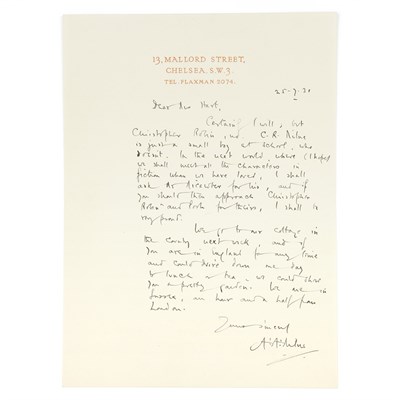 13, MALLORD STREET,
CHELSEA. S.W.3.
TEL. FLAXMAN 2074.
25-9-30
Dear Mr Hart,
Certainly I will, but
Christopher Robin, and C. R. Milne
is just a small boy at school, who
doesn't. In the next world, where (I hope)
we shall meet all the characters in
fiction whom we have loved, I shall
ask Mr Micawber for his, and if
you should then approach Christopher
Robin and Pooh for theirs, I shall be
very proud.
We go to our cottage in
the country next week, and if
you are in England for any time
and could drive down one day
to lunch or tea, we could show
you a pretty garden. We are in
Sussex, an hour and a half from
London.
Yours sincerely
A. A. Milne